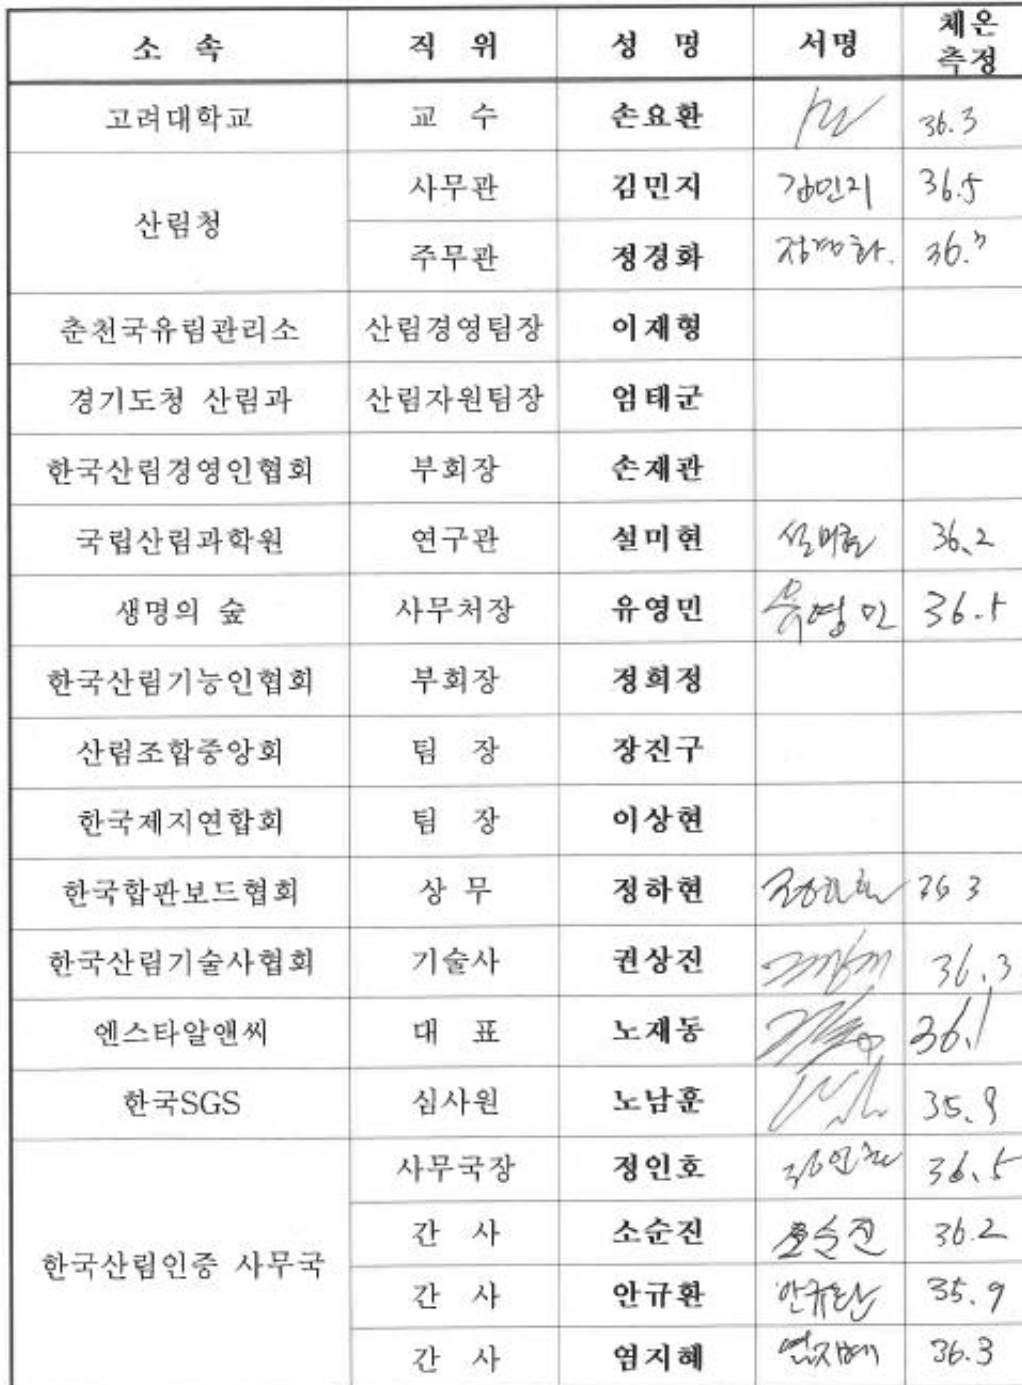 소 속 직 위 성 명 서명 체온 측정
고려대학교 교 수 손요환 36.3
산림청 사무관 김민지 김민지 36.5
주무관 정경화 정경화. 36.
춘천국유림관리소 산림경영팀장 이재형
경기도청 산림과 산림자원팀장 엄태군
한국산림경영인협회 부회장 손재관
국립산림과학원 연구관 설미현 설미현 36.2
생명의 숲 사무처장 유영민 유영민 36.5
한국산림기능인협회 부회장 정희정
산림조합중앙회 팀 장 장진구
한국제지연합회 팀 장 이상현
한국합판보드협회 상 무 정하현 정하현
한국산림기술사협회 기술사 권상진 36.3
엔스타알앤씨 대 표 노재동 36.1
한국SGS 심사원 노남훈 35.9
한국산림인증 사무국 사무국장 정인호 정인호 36.5
간 사 소순진 소순진 36.2
간 사 안규환 안규환 35.9
간 사 염지혜 염지혜 36.3